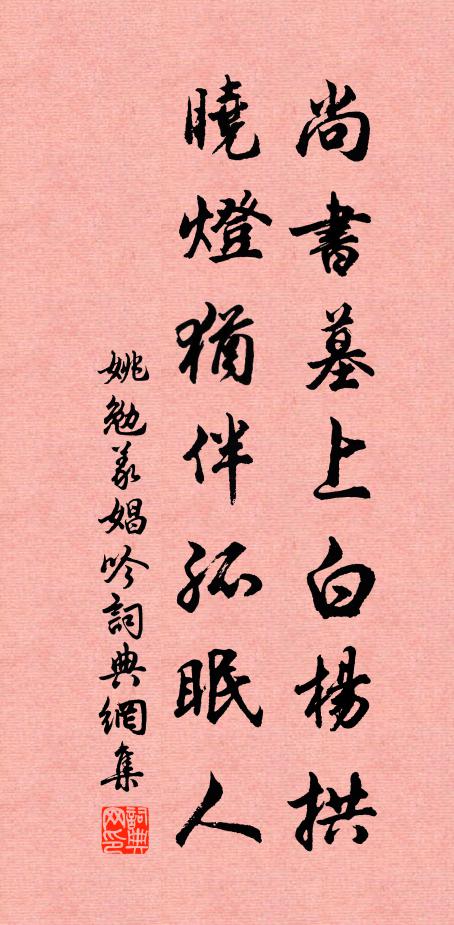 尚書墓上白楊拱
曉燈猶伴孤眠人
姚勉義娼吟詞典網集
詞典網印